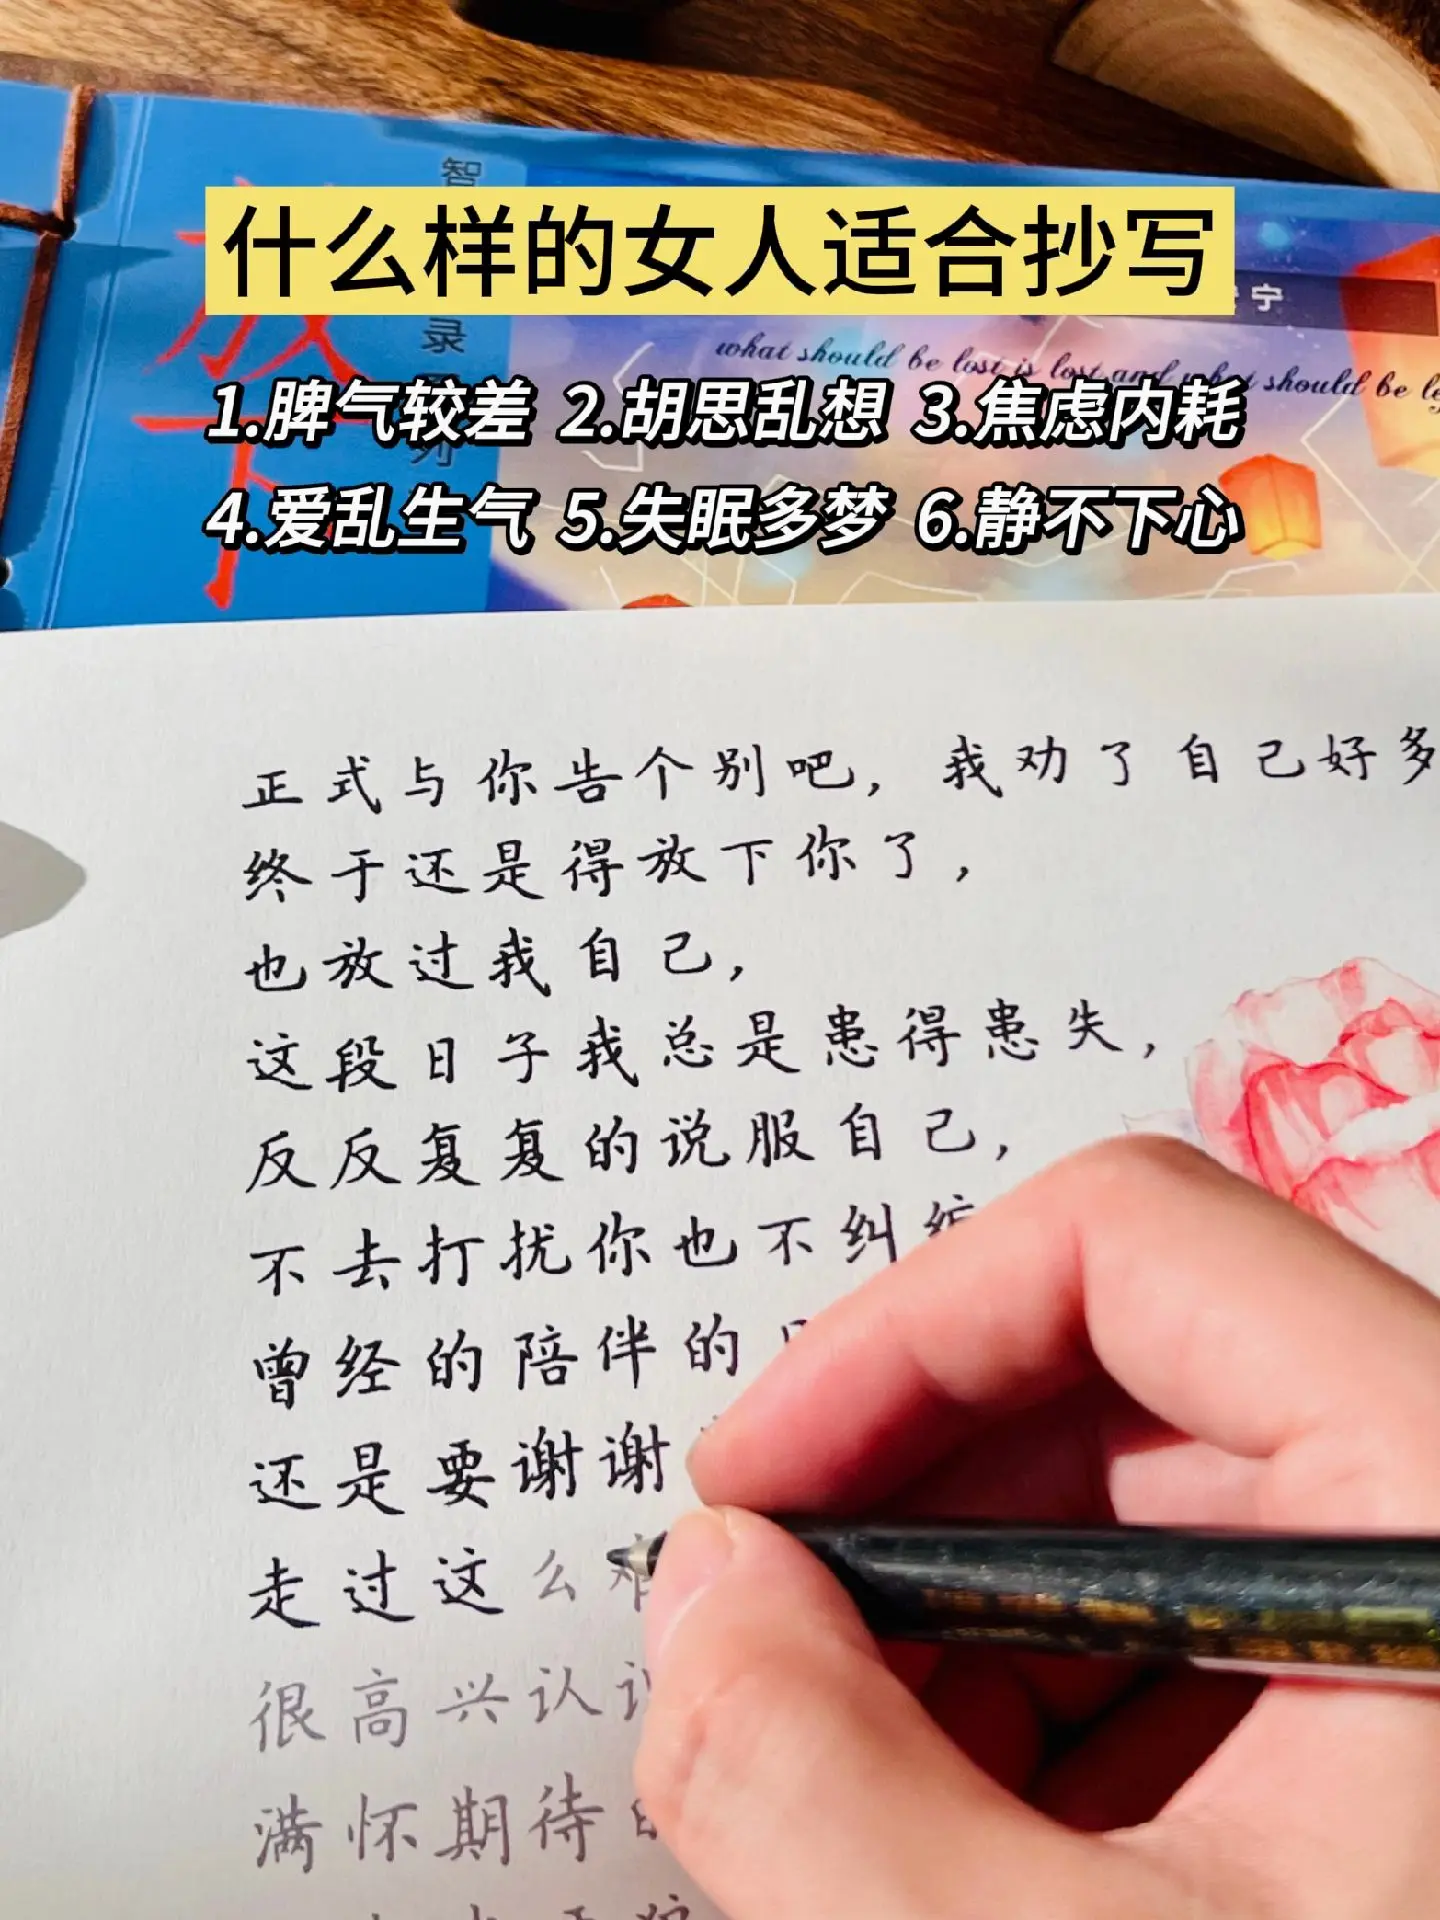 什么样的女人适合抄写
1.脾气较差 2.胡思乱想 3.焦虑内耗
4.爱乱生气 5.失眠多梦 6.静不下心
放下
智
录
列
宁
what should be lost is lost and what should be
正式与你告个别吧，我劝了自己好多
终于还是得放下你了，
也放过我自己，
这段日子我总是患得患失，
反反复复的说服自己，
不去打扰你也不纠缠
曾经的陪伴的
还是要谢谢
走过这么难
很高兴认识
满怀期待的